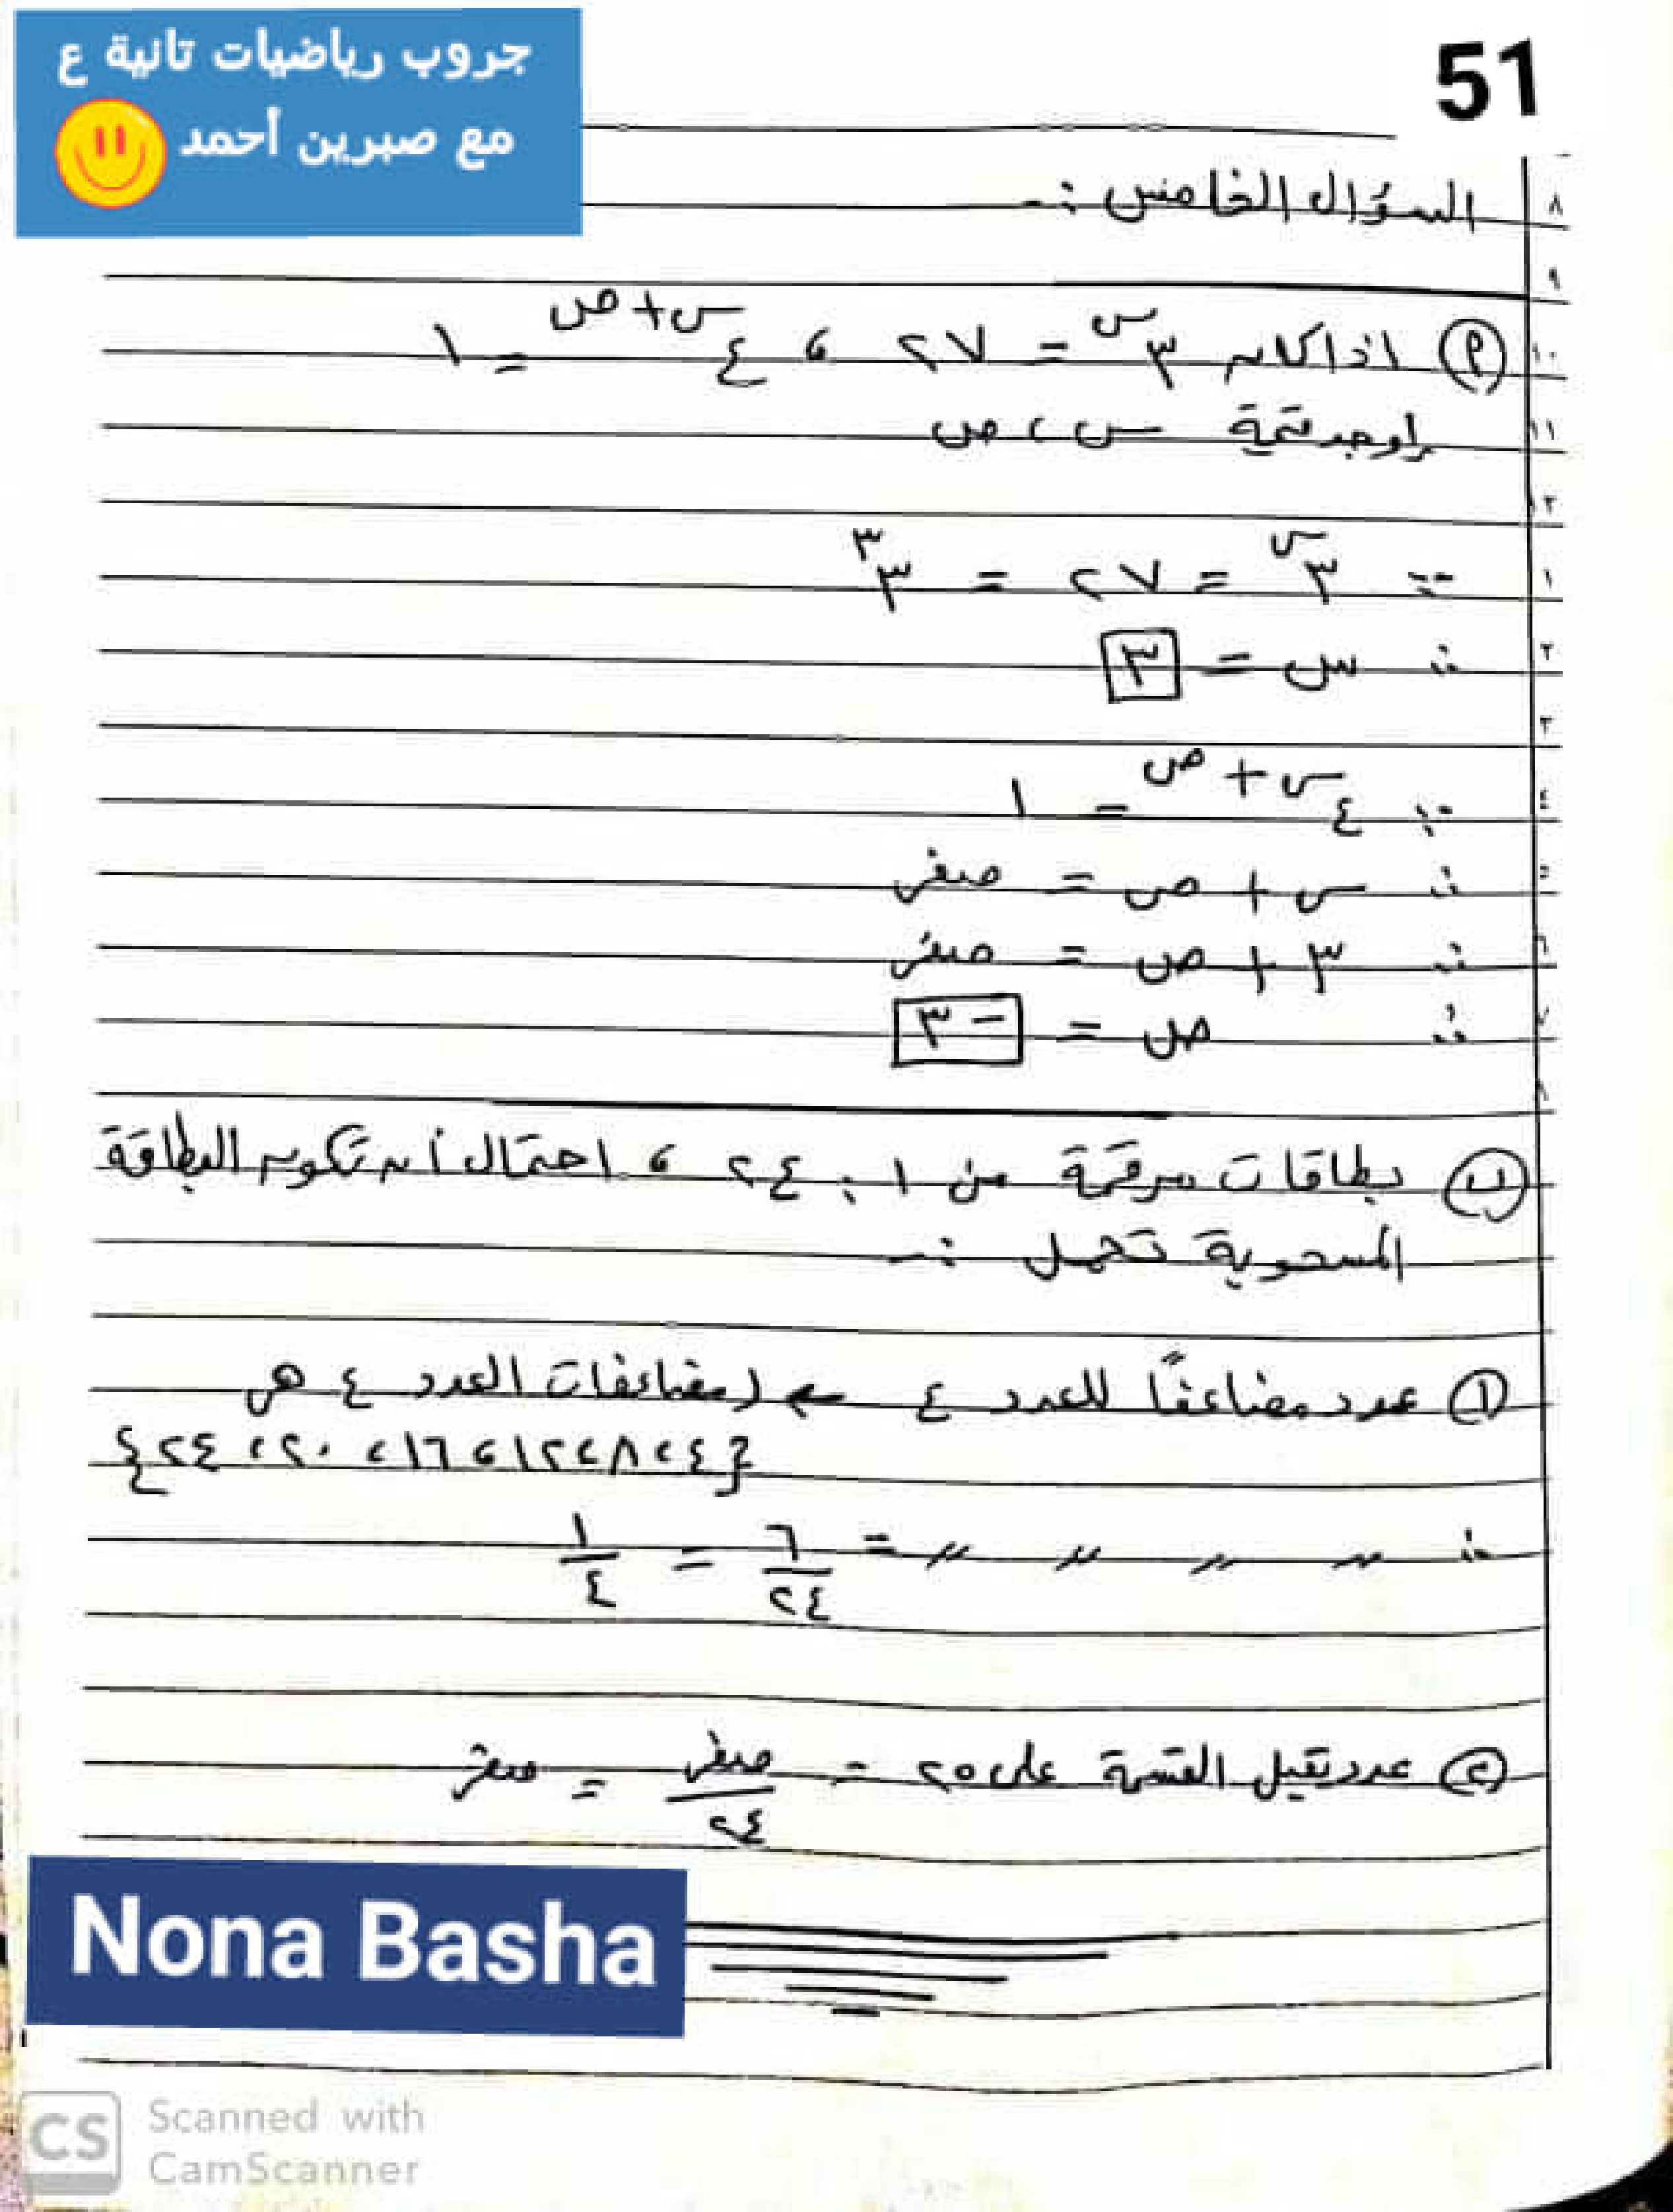 جروب رياضيات تانية ع
مع صبرين أحمد
51
السؤال الخامس :-
(أ) اذا كان ٣^س = ٢٧ ، ٤^(س+ص) = ١
اوجد قيمة س ، ص
∵ ٣^س = ٢٧ = ٣^٣
∴ س = ٣
∵ ٤^(س+ص) = ١
∴ س + ص = صفر
∴ ٣ + ص = صفر
∴ ص = -٣
(ب) بطاقات مرقمة من ١ : ٢٤ ، احتمال أن تكون البطاقة
المسحوبة تحمل :-
(١) عدد مضاعفاً للعدد ٤ ← مضاعفات العدد ٤ هى
{٤، ٨، ١٢، ١٦، ٢٠، ٢٤}
∴ 〃 〃 〃 〃 = ٦/٢٤ = ١/٤
(٢) عدد يقبل القسمة على ٢٥ = صفر/٢٤ = صفر
Nona Basha
CS Scanned with
CamScanner